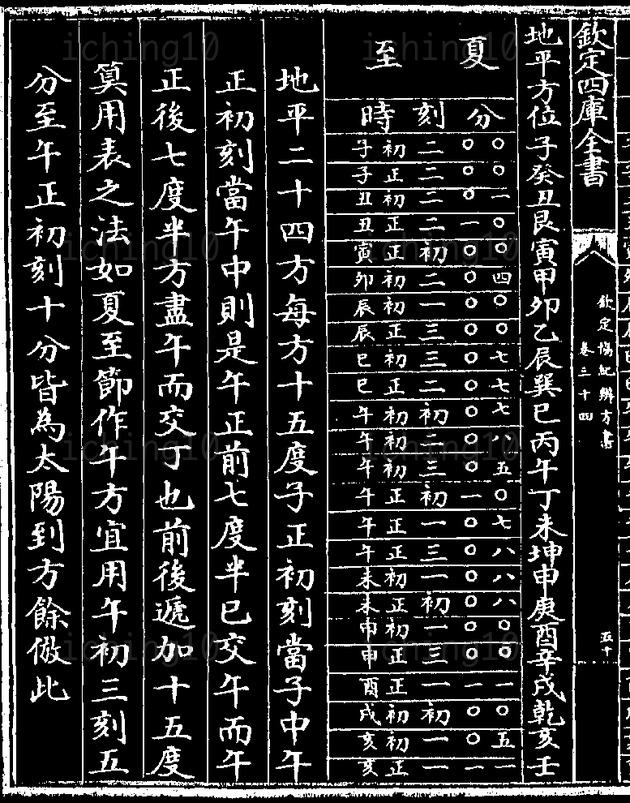 欽定四庫全書
欽定協紀辨方書
卷三十四
五十
地平方位子癸丑艮寅甲卯乙辰巽巳丙午丁未坤申庚酉辛戌乾亥壬
夏至
時刻分
子初二〇〇
子正二〇〇
丑初二〇一
丑正二一〇
寅正初〇〇
卯初二〇四
辰初一〇〇
辰正三〇〇
巳初三〇七
巳正二〇七
午初初〇七
午初二〇八
午初三〇五
午正初一〇
午正一〇七
午正三〇八
未初一〇八
未正初〇八
申初一〇〇
申正三〇〇
酉正一一一
戌初初〇〇
亥初一〇五
亥正一一一
地平二十四方每方十五度子正初刻當子中午
正初刻當午中則是午正前七度半已交午而午
正後七度半方盡午而交丁也前後遞加十五度
算用表之法如夏至節作午方宜用午初三刻五
分至午正初刻十分皆為太陽到方餘倣此